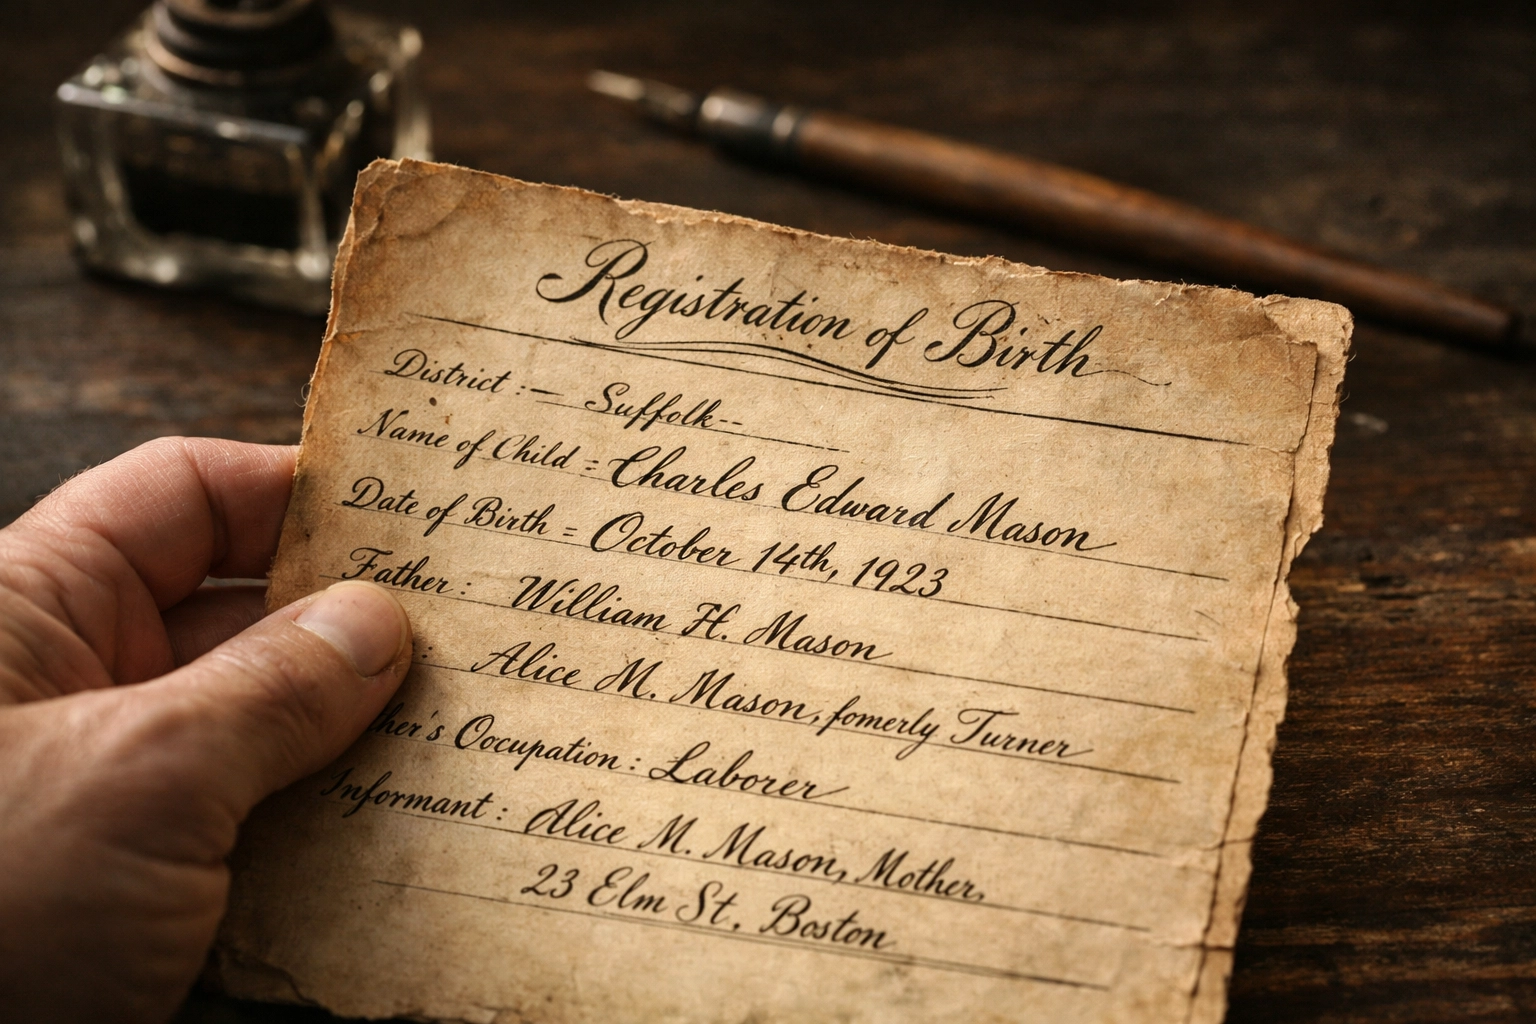 Registration of Birth
District :— Suffolk--
Name of Child = Charles Edward Mason
Date of Birth = October 14th, 1923
Father : William H. Mason
: Alice M. Mason, fomerly Turner
her's Occupation : Laborer
Informant : Alice M. Mason, Mother,
23 Elm St. Boston